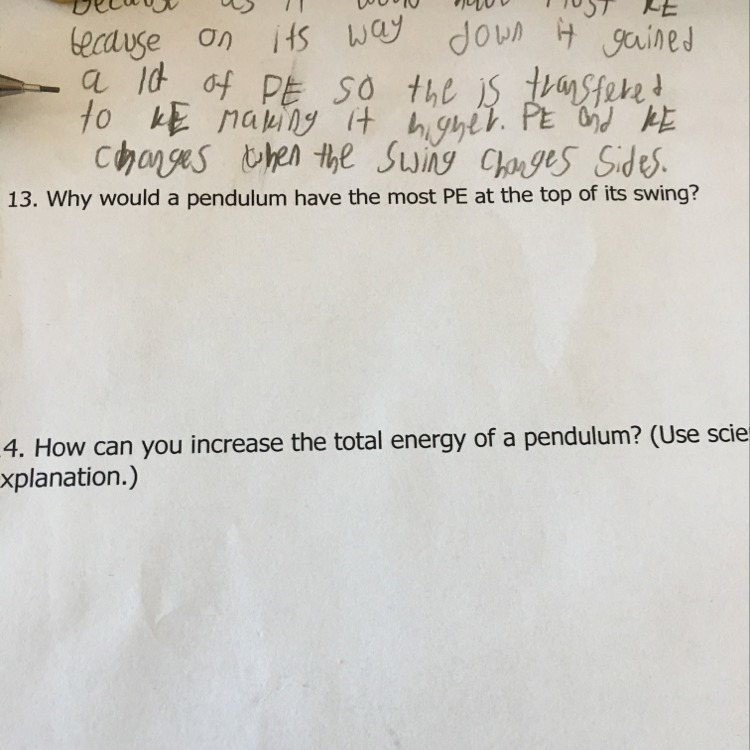 because on its way down it gained
a lot of PE so the is transfered
to KE making it higher. PE and KE
changes when the swing changes sides.
13. Why would a pendulum have the most PE at the top of its swing?
4. How can you increase the total energy of a pendulum? (Use scie
xplanation.)